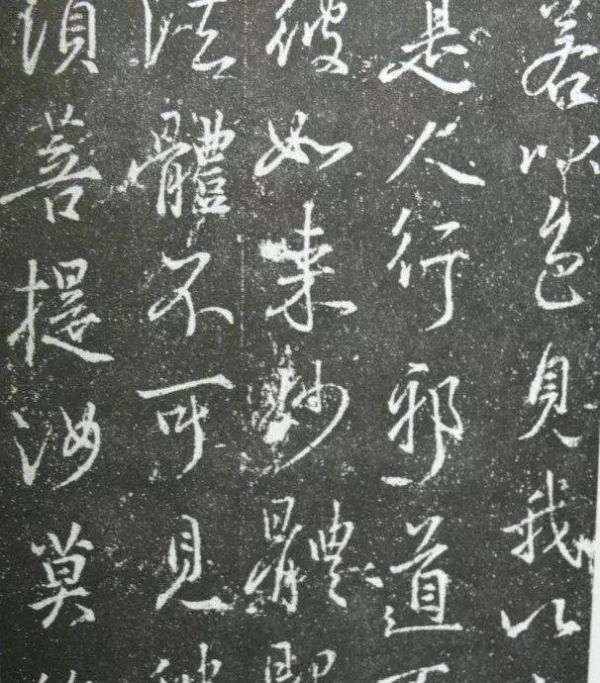 若以色見我以
是人行邪道
彼如来妙體即
法體不可見彼
須菩提汝莫